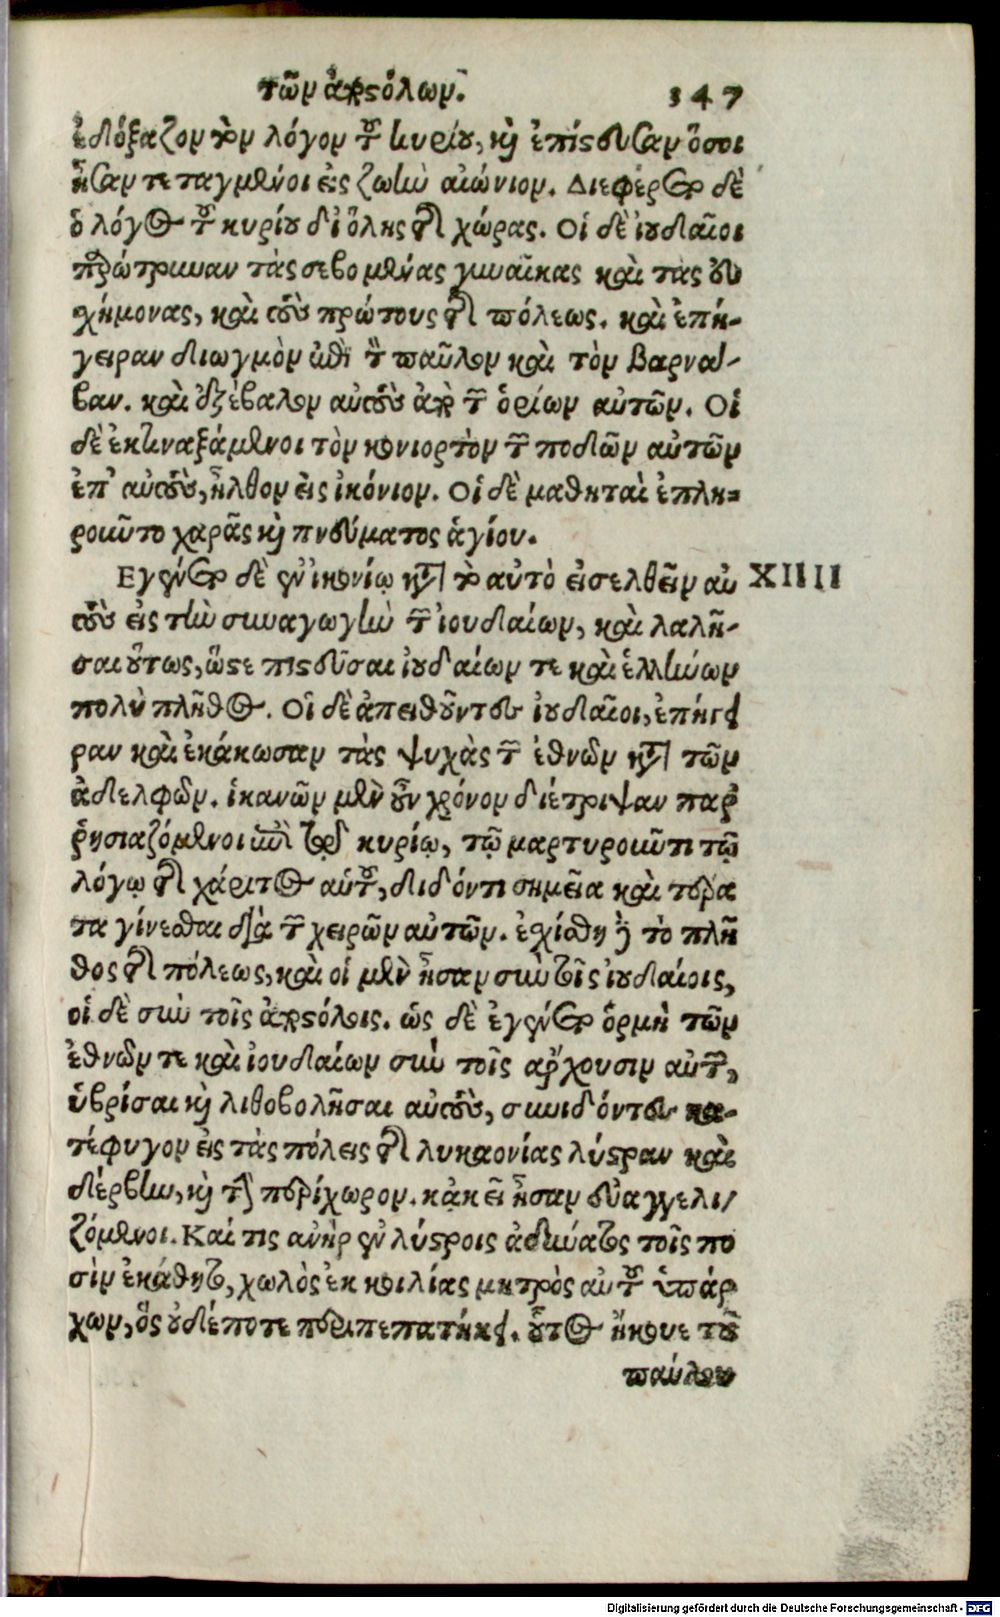 τῶν ἀποστόλων. 347
ἐδόξαζον τὸν λόγον τοῦ κυρίου, καὶ ἐπίστευσαν ὅσοι
ἦσαν τεταγμένοι εἰς ζωὴν αἰώνιον. Διεφέρετο δὲ
ὁ λόγος τοῦ κυρίου δι ὅλης τῆς χώρας. Οἱ δὲ ἰουδαῖοι
παρώτρυναν τὰς σεβομένας γυναῖκας καὶ τὰς εὐ
χήμονας, καὶ τοὺς πρώτους τῆς πόλεως. καὶ ἐπή-
γειραν διωγμὸν ἐπὶ τὸν παῦλον καὶ τὸν βαρνά-
βαν. καὶ ἐξέβαλον αὐτοὺς ἀπὸ τῶν ὁρίων αὐτῶν. Οἱ
δὲ ἐκτιναξάμενοι τὸν κονιορτὸν τῶν ποδῶν αὐτῶν
ἐπ' αὐτοὺς, ἦλθον εἰς ἰκόνιον. Οἱ δὲ μαθηταὶ ἐπλη=
ροῦντο χαρᾶς καὶ πνεύματος ἁγίου.
Εγένετο δὲ ἐν ἰκονίῳ κατὰ τὸ αὐτὸ εἰσελθεῖν αὐ XIIII
τοὺς εἰς τὴν συναγωγὴν τῶν ἰουδαίων, καὶ λαλῆ-
σαι οὕτως, ὥστε πιστεῦσαι ἰουδαίων τε καὶ ἑλλήνων
πολὺ πλῆθος. Οἱ δὲ ἀπειθοῦντες ἰουδαῖοι, ἐπήγει
ραν καὶ ἐκάκωσαν τὰς ψυχὰς τῶν ἐθνῶν κατὰ τῶν
ἀδελφῶν. ἱκανῶν μὲν οὖν χρόνον διέτριψαν παρ
ῥησιαζόμενοι ἐπὶ τῷ κυρίῳ, τῷ μαρτυροῦντι τῷ
λόγῳ τῆς χάριτος αὐτοῦ, διδόντι σημεῖα καὶ τέρα
τα γίνεσθαι διὰ τῶν χειρῶν αὐτῶν. ἐσχίσθη δὲ τὸ πλῆ
θος τῆς πόλεως, καὶ οἱ μὲν ἦσαν σὺν τοῖς ἰουδαίοις,
οἱ δὲ σὺν τοῖς ἀποστόλοις. ὡς δὲ ἐγένετο ὁρμὴ τῶν
ἐθνῶν τε καὶ ἰουδαίων σὺν τοῖς αρχουσιν αὐτῶν,
ὑβρίσαι καὶ λιθοβολῆσαι αὐτοὺς, συνιδόντες κα-
τέφυγον εἰς τὰς πόλεις τῆς λυκαονίας λύστραν καὶ
δέρβην, καὶ τὴν περίχωρον. κἀκεῖ ἦσαν εὐαγγελι/
ζόμενοι. Καί τις ανὴρ ἐν λύστροις ἀδύνατος τοῖς πο
σὶν ἐκάθητο, χωλὸς ἐκ κοιλίας μητρὸς αὐτοῦ ὑπάρ
χων, ὃς οὐδέποτε περιπεπατήκει. οὗτος ἤκουε τοῦ
παύλου